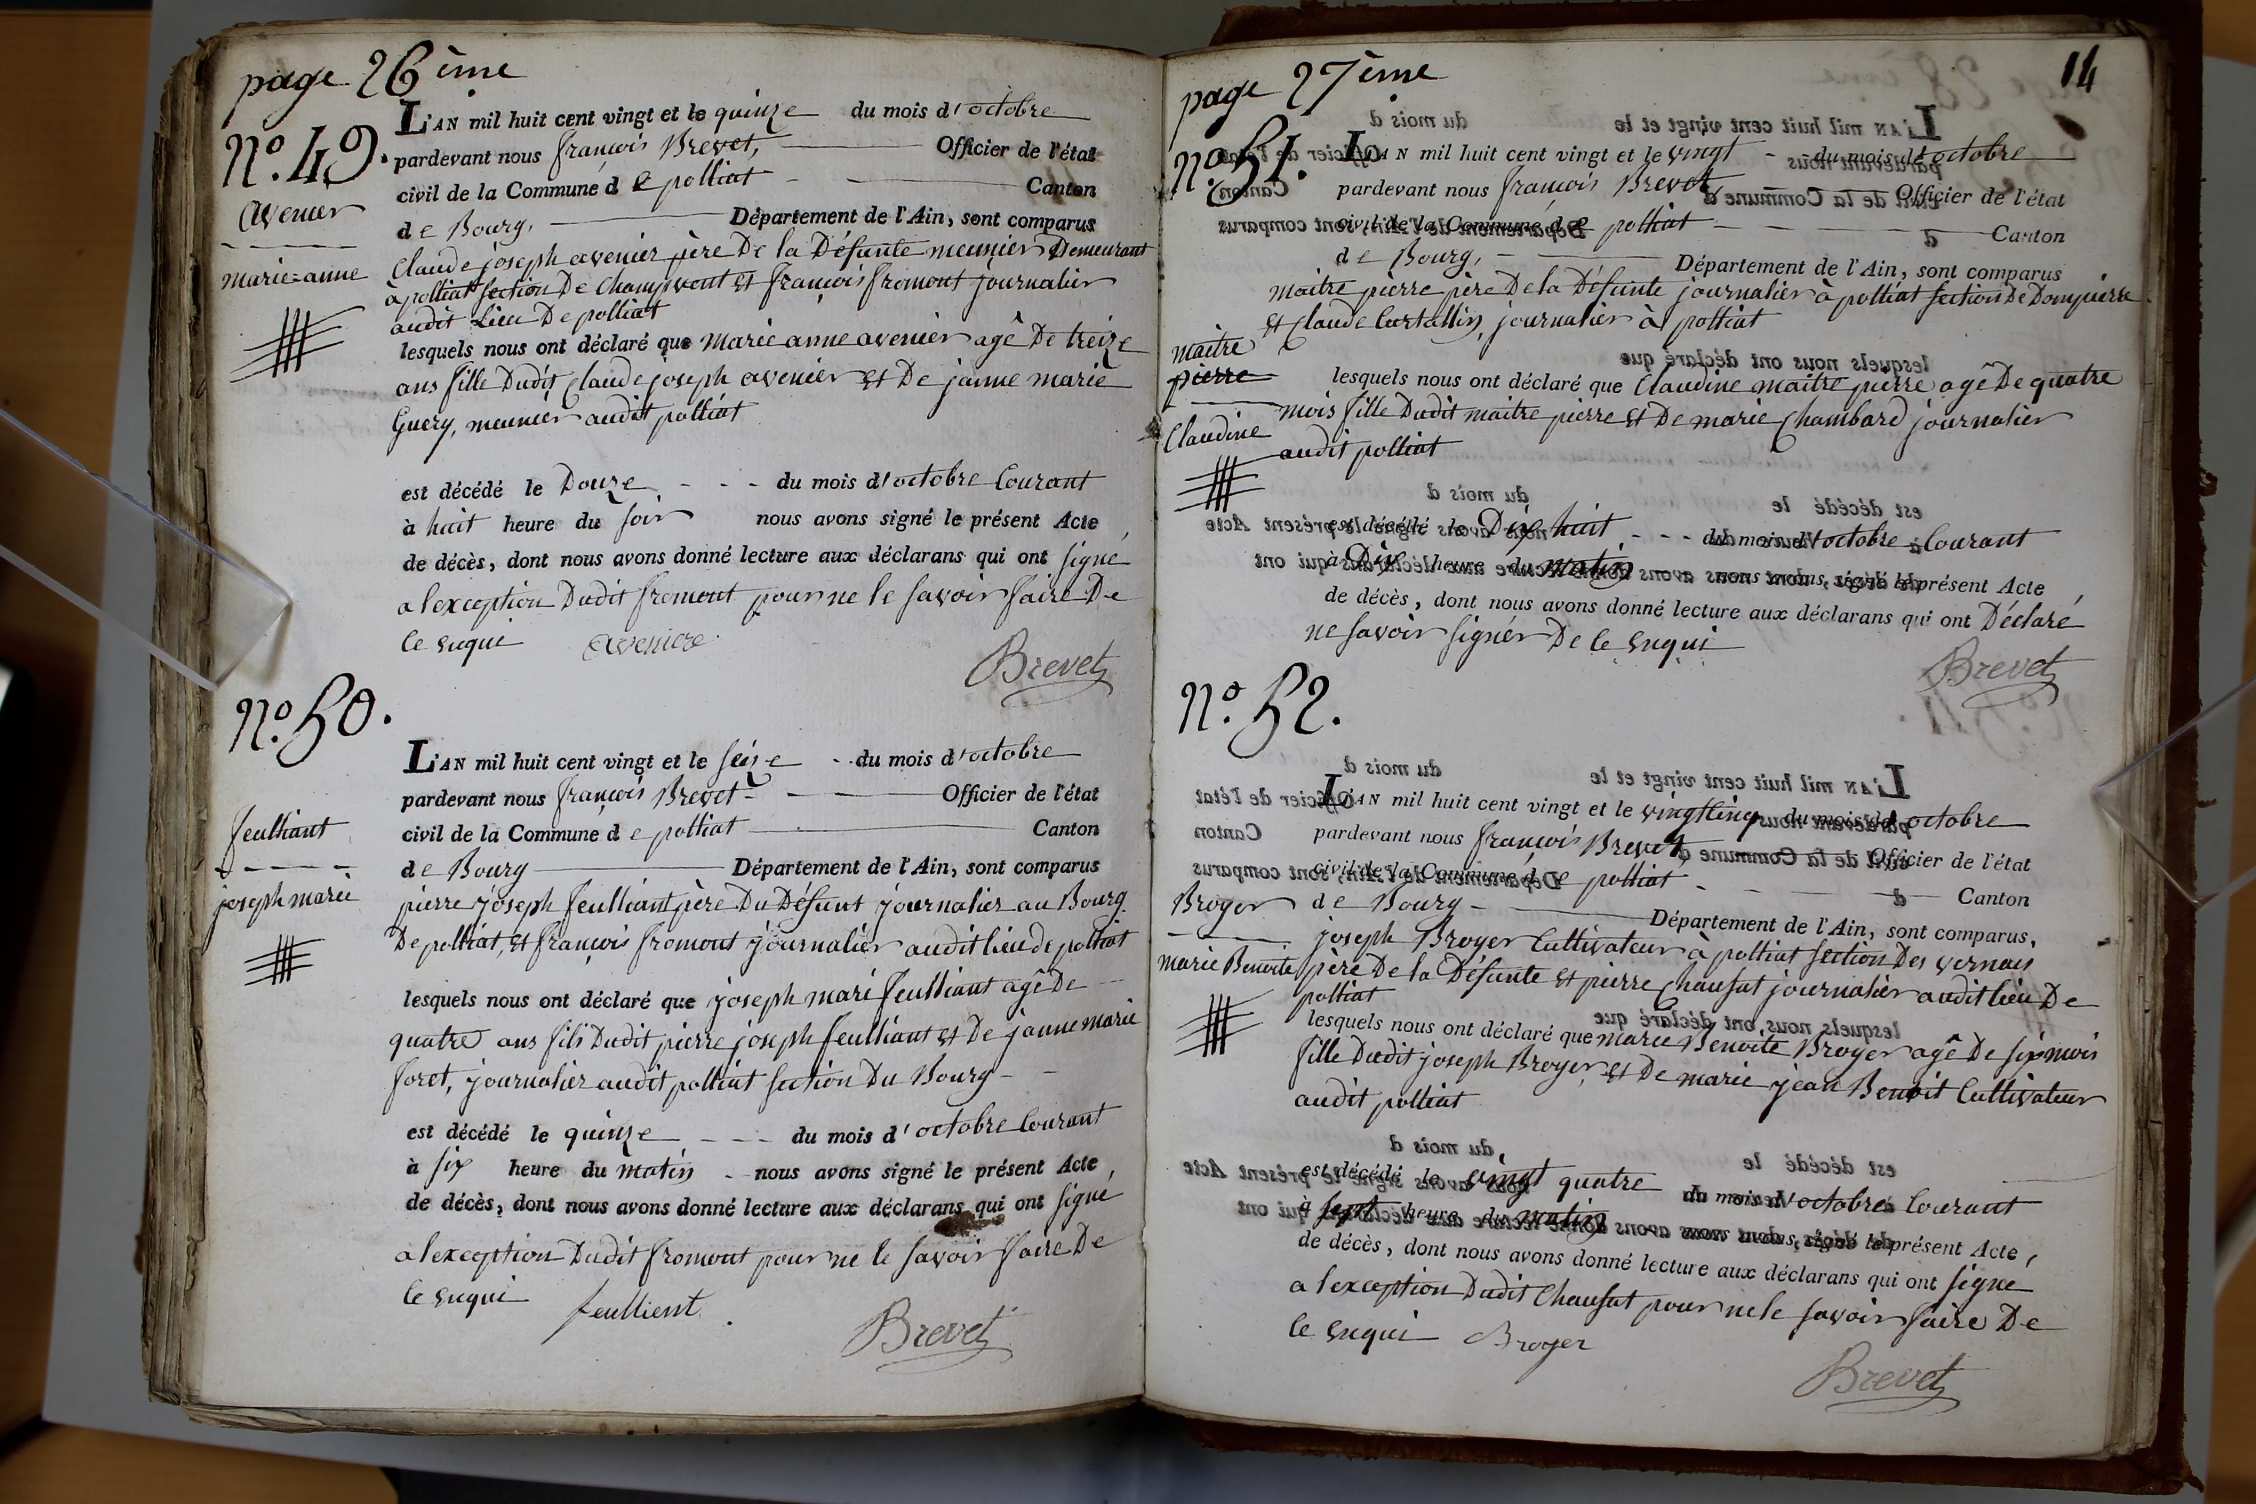 page 26ème
N.º 49.
avenier
marie=anne
L'AN mil huit cent vingt et le quinze du mois d'octobre
pardevant nous françois Brevet, Officier de l'état
civil de la Commune de polliat Canton
de Bourg, Département de l'Ain, sont comparus
Claude joseph avenier père De la Défunte meunier Demeurant
à polliat section De Champvent Et françois fromont journalier
audit Lieu De polliat
lesquels nous ont déclaré que marie anne avenier agê De treize
ans fille Dudit Claude joseph avenier Et De janne marie
Guery, meunier audit polliat
est décédé le Douze du mois d'octobre Courant
à huit heure du soir nous avons signé le présent Acte
de décès, dont nous avons donné lecture aux déclarans qui ont signé
a lexception Dudit fromont pour ne le savoir faire De
Ce Enqui avenier
Brevet
N.º 50.
feulliant
joseph marie
L'AN mil huit cent vingt et le seize du mois d'octobre
pardevant nous françois Brevet Officier de l'état
civil de la Commune de polliat Canton
de Bourg Département de l'Ain, sont comparus
pierre joseph feulliant père Du Défunt journalier au Bourg
De polliat, Et françois fromont journalier audit lieu de polliat
lesquels nous ont déclaré que joseph marie feulliant agê De
quatre ans fils Dudit pierre joseph feulliant Et De janne marie
foret, journalier audit polliat section Du Bourg
est décédé le quinze du mois d'octobre Courant
à six heure du matin nous avons signé le présent Acte,
de décès, dont nous avons donné lecture aux déclarans qui ont signé
a lexception Dudit fromont pour ne le savoir faire De
Ce Enqui feullient
Brevet
page 27ème
14
N.º 51.
maitre
pierre
Claudine
L'AN mil huit cent vingt et le vingt du mois d'octobre
pardevant nous françois Brevet, Officier de l'état
civil de la Commune de polliat Canton
de Bourg, Département de l'Ain, sont comparus
maitre pierre père De la Défunte journalier à polliat section De Dompierre
Et Claude Curtallin, journalier à polliat
lesquels nous ont déclaré que Claudine maitre pierre agê De quatre
mois fille Dudit maitre pierre Et De marie Chambard journalier
audit polliat
est décédé le Dix huit du mois d'octobre Courant
à Dix heure du matin nous avons signé le présent Acte
de décès, dont nous avons donné lecture aux déclarans qui ont Déclaré
ne savoir signér De Ce Enqui
Brevet
N.º 52.
Broyer
marie Benoite
L'AN mil huit cent vingt et le vingt Cinq du mois d'octobre
pardevant nous françois Brevet, Officier de l'état
civil de la Commune de polliat Canton
de Bourg Département de l'Ain, sont comparus,
joseph Broyer Cultivateur à polliat section Des vernais
père De la Défunte Et pierre Chanfut journalier audit lieu De
polliat
lesquels nous ont déclaré que marie Benoite Broyer agê De six mois
fille Dudit joseph Broyer, Et De marie jean Benoit Cultivateur
audit polliat
est décédé le vingt quatre du mois d'octobre Courant
à sept heure du matin nous avons signé le présent Acte,
de décès, dont nous avons donné lecture aux déclarans qui ont signe
a lexception Dudit Chanfut pour ne le savoir faire De
Ce Enqui Broyer
Brevet